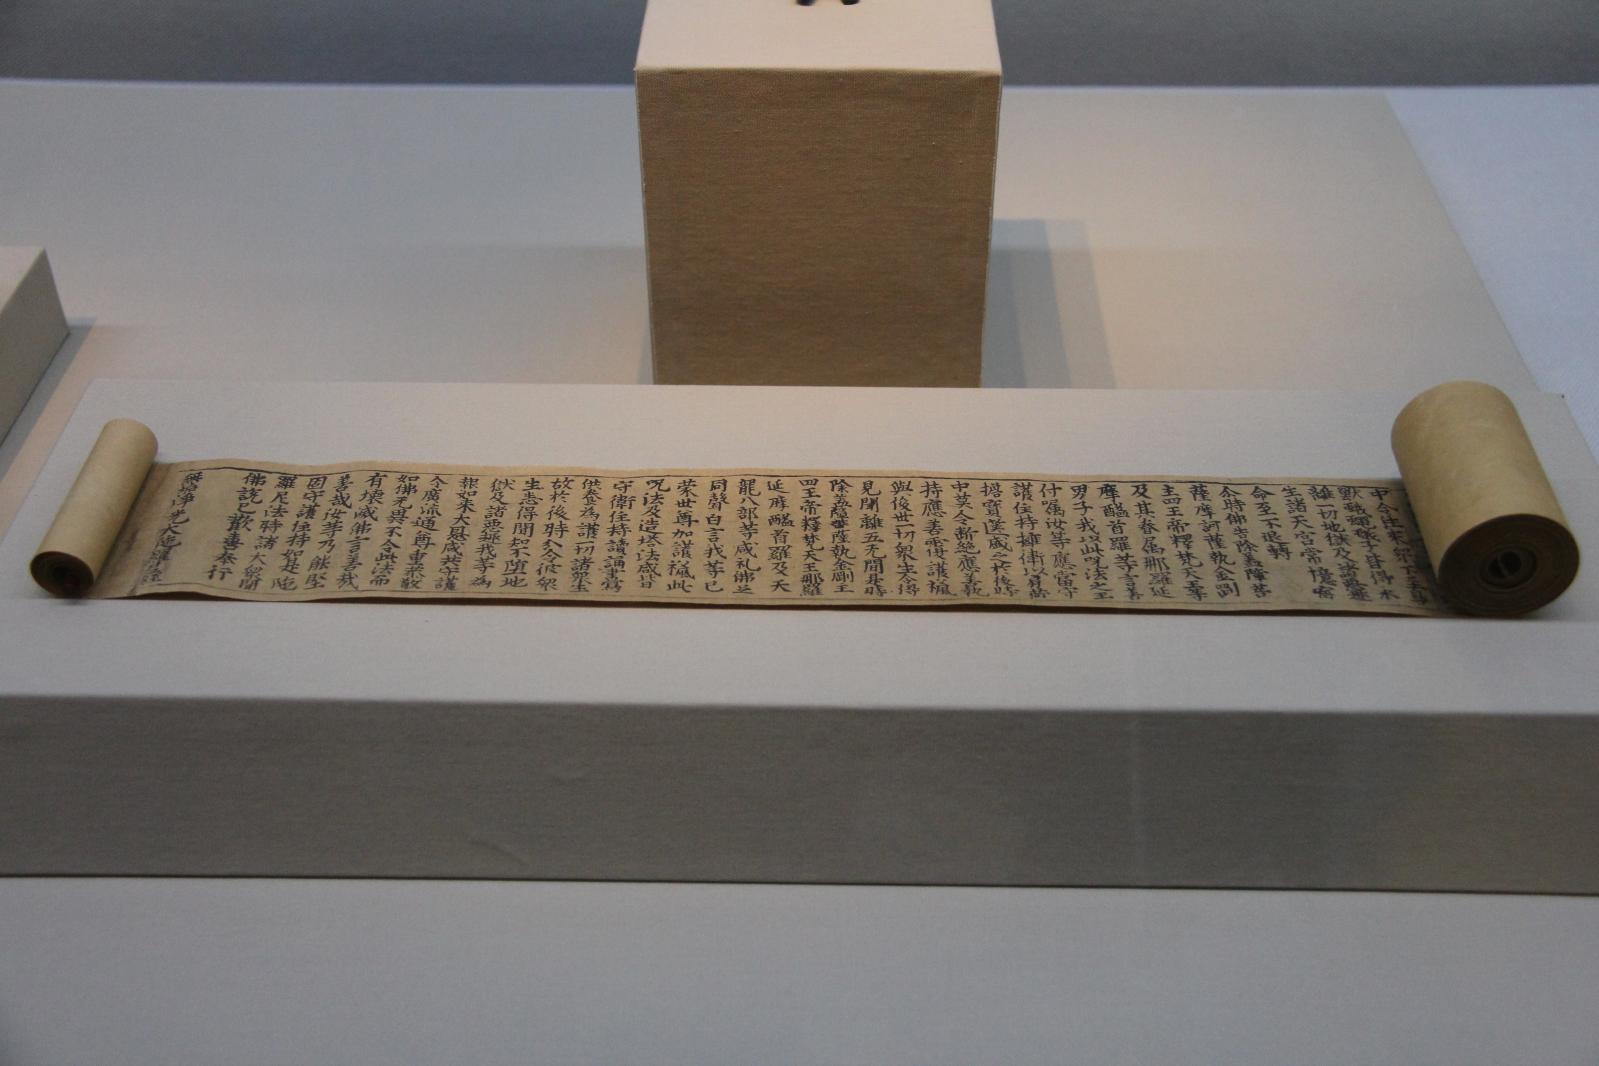 離一切地獄及諸惡趣
生諸天宮常隨
命至不退轉
尒時佛告除蓋障菩
薩摩訶薩執金剛
主四王帝釋梵天王等
及其眷属那羅延
摩醯首羅等言善
男子我以此呪法之王
付嘱汝等應當守
護住持擁衛以肩荷
擔寶篋盛之於後時
中莫令斷絶應善執
持應善守護授
與後世一切衆生令得
見聞離五无間是時
除蓋障菩薩執金剛主
四王帝釋梵天王那羅
延摩醯首羅及天
龍八部等咸礼佛足
同聲白言我等已
蒙世尊加護授此
呪法及造塔法咸皆
守衛住持讀誦書寫
供養為護一切諸衆生
故於後時令彼衆
生悉得聞知不墮地
獄及諸惡趣我等為
報如来大恩咸共守護
令廣流通尊重恭敬
如佛无異不令此法而
有壞滅佛言善哉
善哉汝等乃能堅
固守護住持如是陁
羅尼法時諸大衆聞
佛說已歡喜奉行
無垢淨光大陁羅尼經